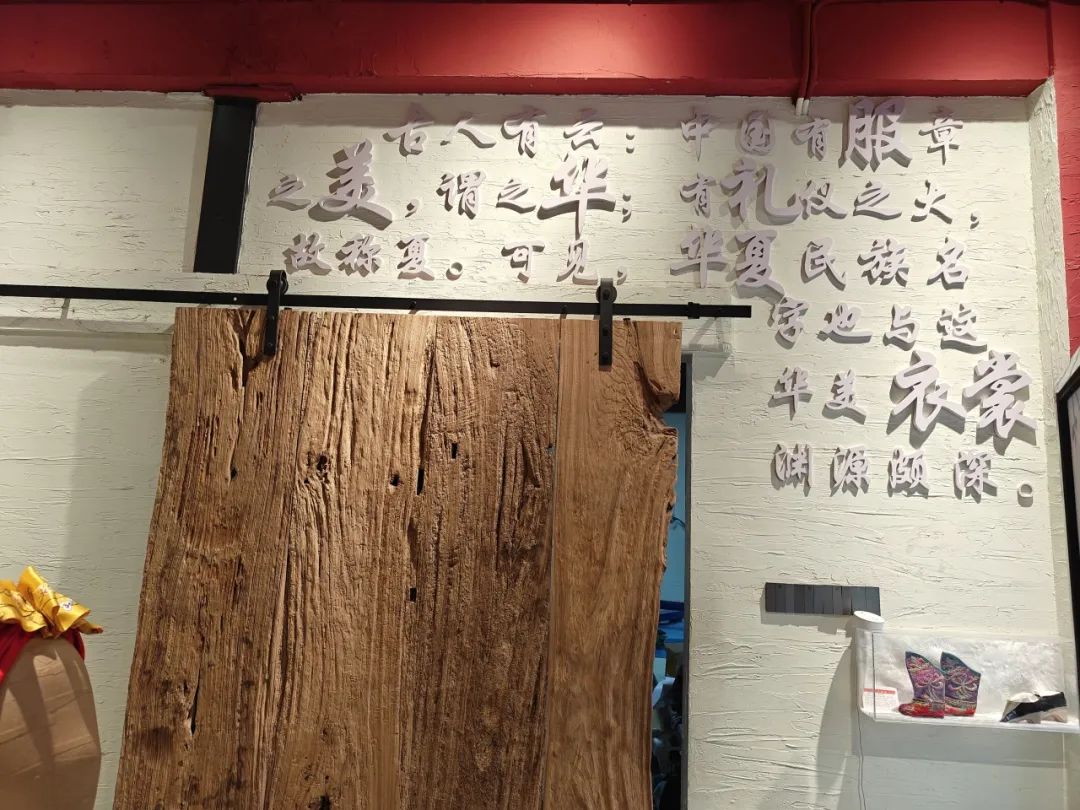 古人有云：中国有服章
之美，谓之华；有礼仪之大，
故称夏。可见，华夏民族名
字也与这
华美衣裳
渊源颇深。